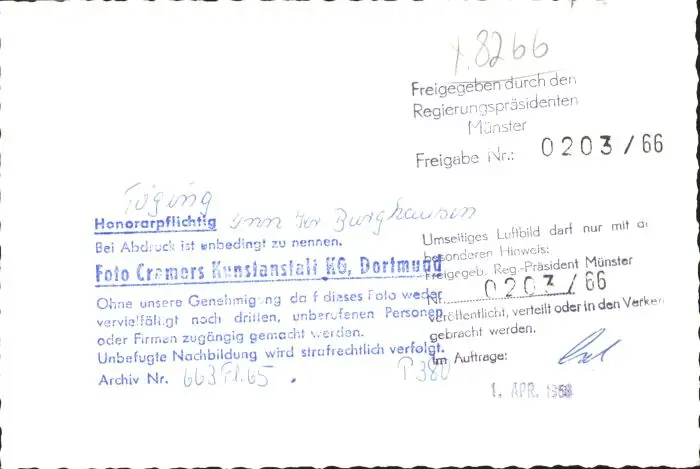 1.8266
Freigegeben durch den
Regierungspräsidenten
Münster
Freigabe Nr.: 0203/66
Töging
Honorarpflichtig Inn ... Burghausen
Bei Abdruck ist unbedingt zu nennen.
Foto Cramers Kunstanstalt KG, Dortmund
Ohne unsere Genehmigung da f dieses Foto weder
vervielfältigt noch dritten, unberufenen Personen
oder Firmen zugängig gemacht werden.
Unbefugte Nachbildung wird strafrechtlich verfolgt.
Archiv Nr. 663 Fl. 65 . P 380
Umseitiges Luftbild darf nur mit de
besonderen Hinweis:
Freigegeb. Reg.-Präsident Münster
Nr. 0203/66
veröffentlicht, verteilt oder in den Verkeh
gebracht werden.
Im Auftrage:
1. APR. 1968